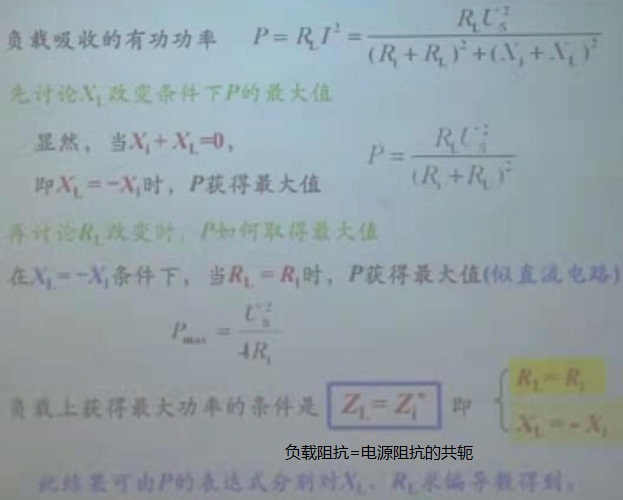 负载吸收的有功功率 P = R_L I² = R_L U_S² / ((R_i + R_L)² + (X_i + X_L)²)
先讨论X_L改变条件下P的最大值
显然，当X_i + X_L=0，
即X_L = -X_i时，P获得最大值 P = R_L U_S² / (R_i + R_L)²
再讨论R_L改变时，P如何取得最大值
在X_L = -X_i条件下，当R_L = R_i时，P获得最大值(似直流电路)
P_max = U_S² / 4R_i
负载上获得最大功率的条件是 Z_L = Z_i* 即 { R_L = R_i
X_L = - X_i
负载阻抗=电源阻抗的共轭
此结果可由P的表达式分别对X_L、R_L求偏导数得到。